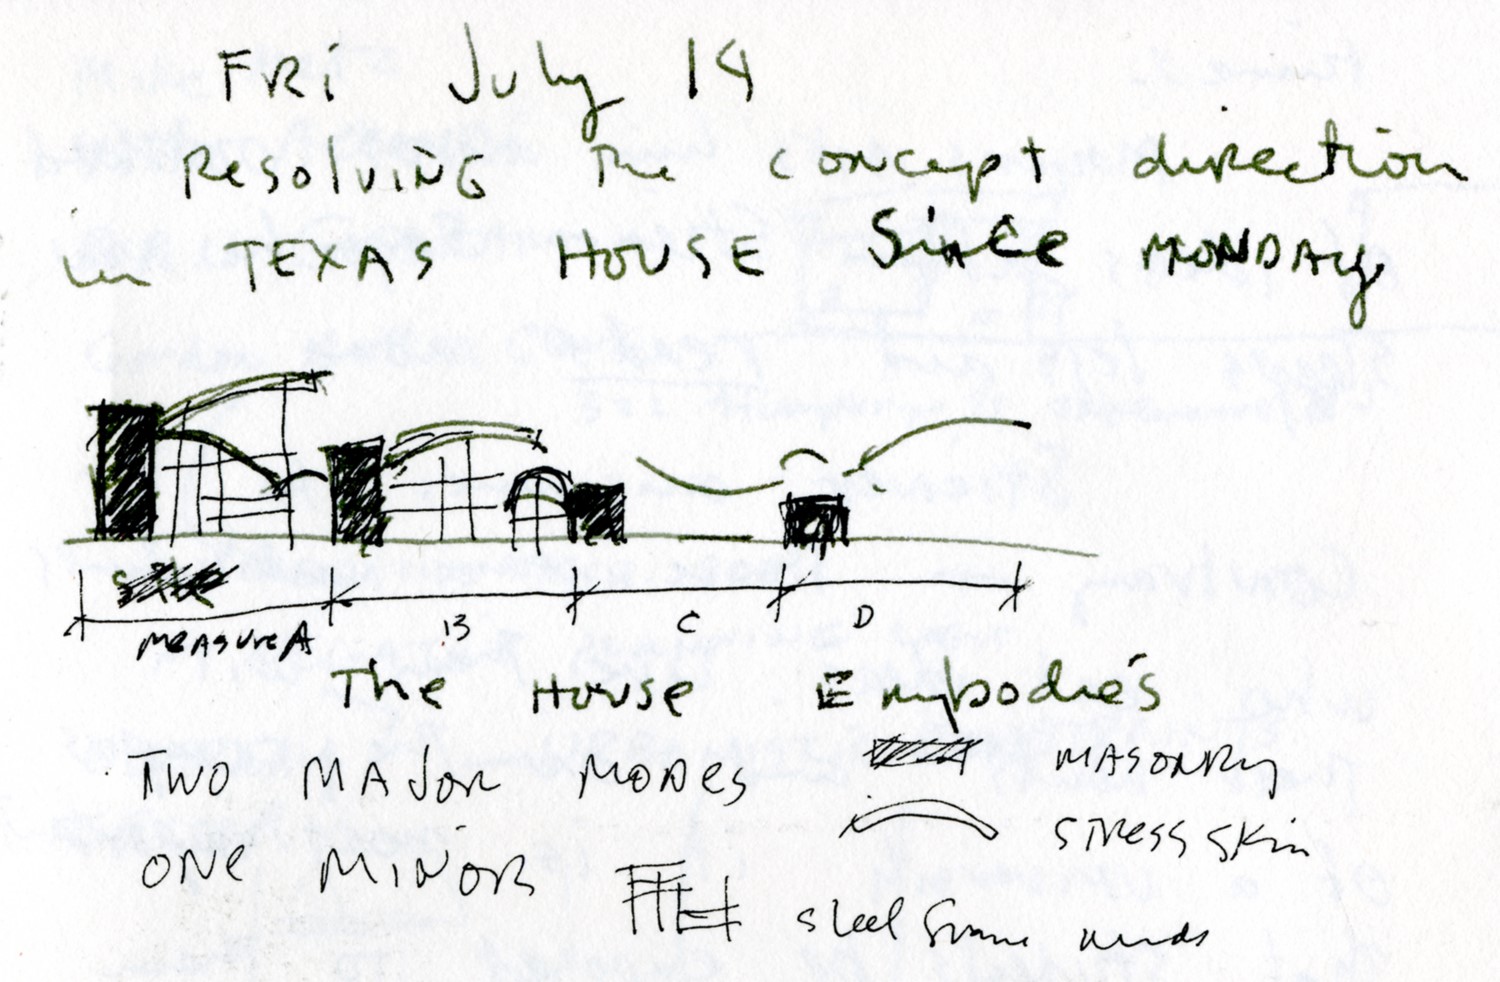 FRi July 14
Resolving The concept direction
in TEXAS HOUSE Since MONDAY
measure A B C D
The House Embodies
TWO MAJOR MODES MASONRY
STRESS SKIN
ONE MINOR
steel frame